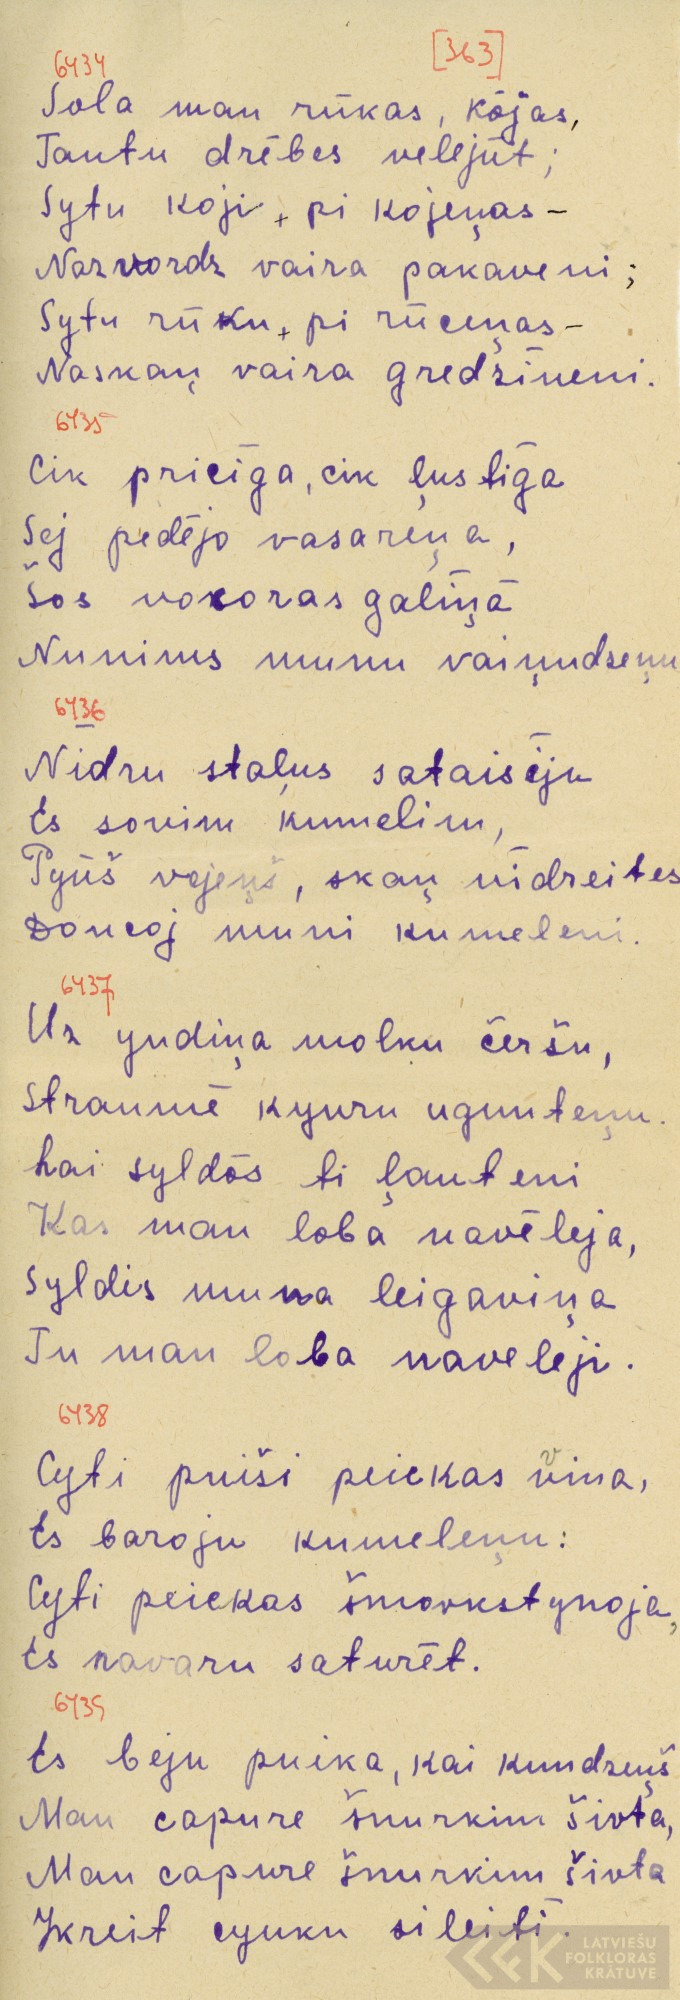 6434 [363]
Sola man rūkas, kōjas,
Tautu drēbes velejūt;
Sytu koji, pi kojeņas –
Nazvordz vaira pakaveni;
Sytu rūku, pi rūceņas –
Naskaņ vaira gredzīneni.
6435
Cik pricīga, cik ļustīga
Sej pedējo vasareņa,
Šos vosoras galīņā
Nunims munu vaiņudzeņu
6436
Nīdru staļus sataisēju
Es sovim kumelim,
Pyūš vejeņš, skaņ nīdreites
Doncoj muni kumeleni.
6437
Uz yudiņa molku čeršu,
Straumē kyuru ugunteņu.
Lai syldōs ti ļauteni
Kas man loba navēleja,
Syldis muna leigaviņa
Tu man loba naveleji.
6438
Cyti puiši peickas vina,
Es baroju kumeleņu:
Cyti peickas šmovkstynoja,
Es navaru saturēt.
6439
Es beju puika, kai kundzeņš
Man capure šnurkim šivta,
Man capure šnurkim šivta
Ikreit cyuku sileitī.
LATVIEŠU
FOLKLORAS
KRĀTUVE